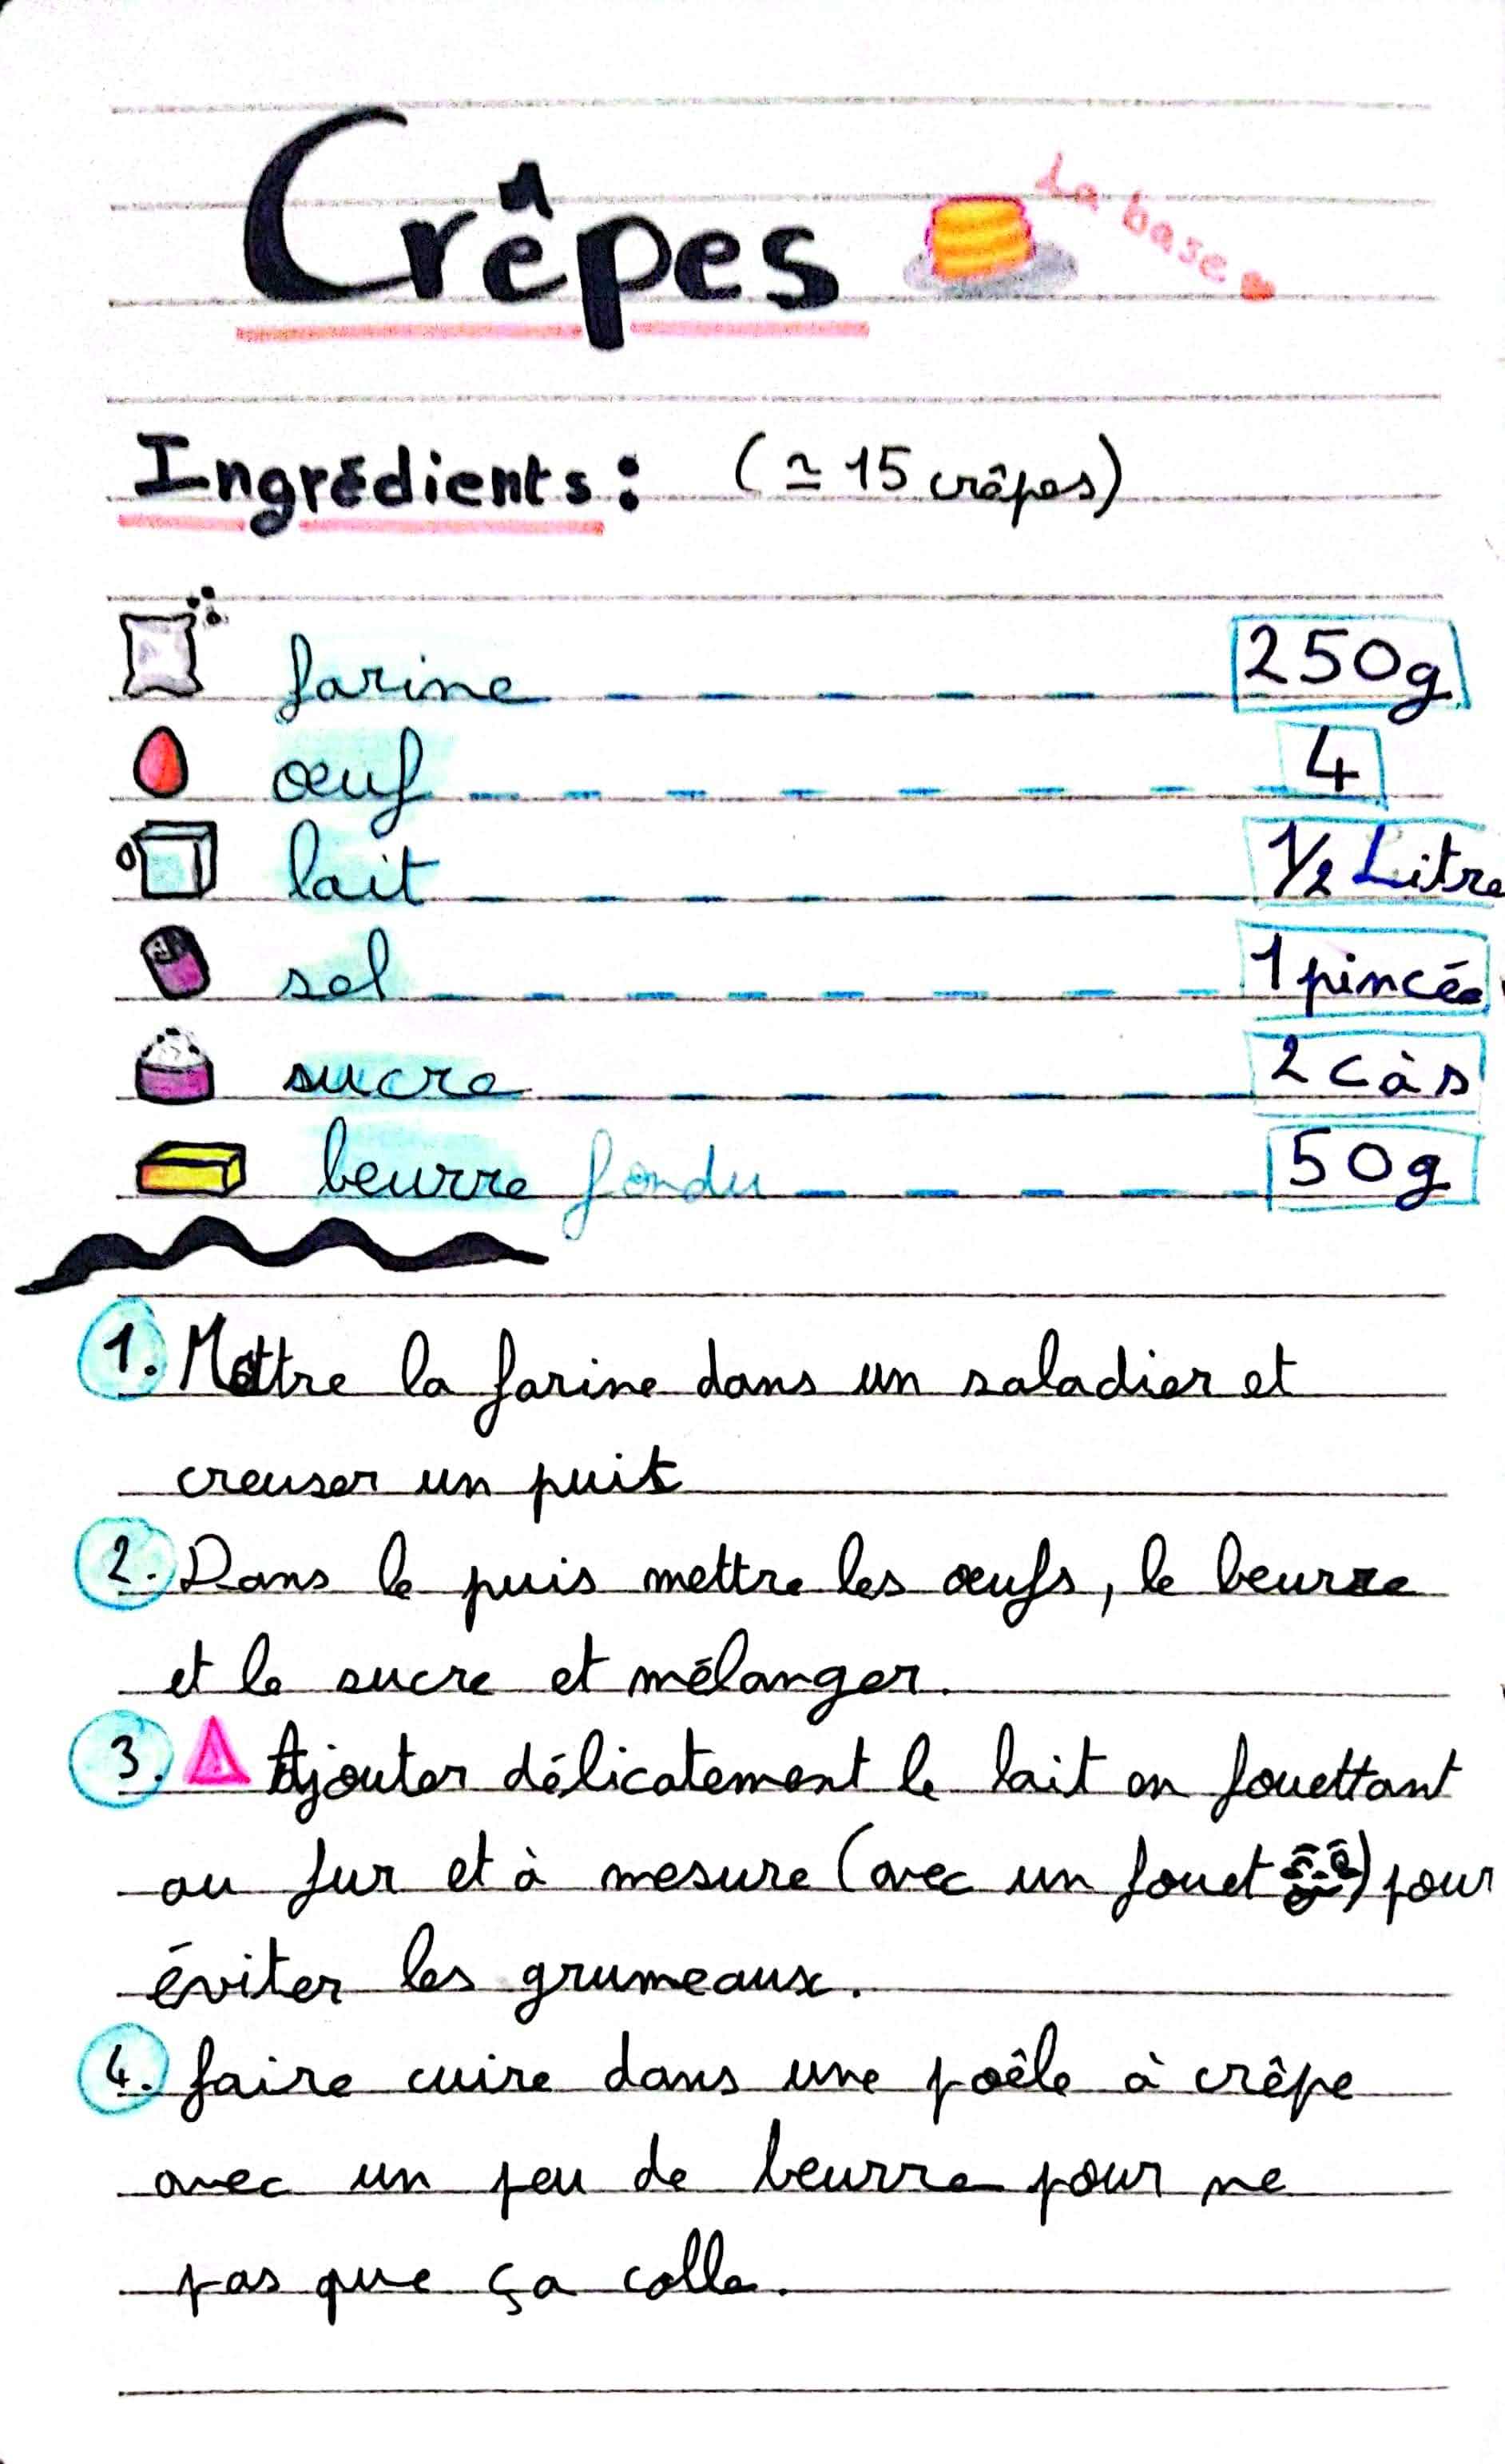 Crêpes
La base
Ingrédients : (≃ 15 crêpes)
farine 250g
œuf 4
lait 1/2 Litre
sel 1 pincée
sucre 2 c à s
beurre fondu 50g
1. Mettre la farine dans un saladier et
creuser un puit
2. Dans le puis mettre les œufs, le beurre
et le sucre et mélanger.
3. Ajouter délicatement le lait en fouettant
au fur et à mesure (avec un fouet) pour
éviter les grumeaux.
4. faire cuire dans une poêle à crêpe
avec un peu de beurre pour ne
pas que ça colle.